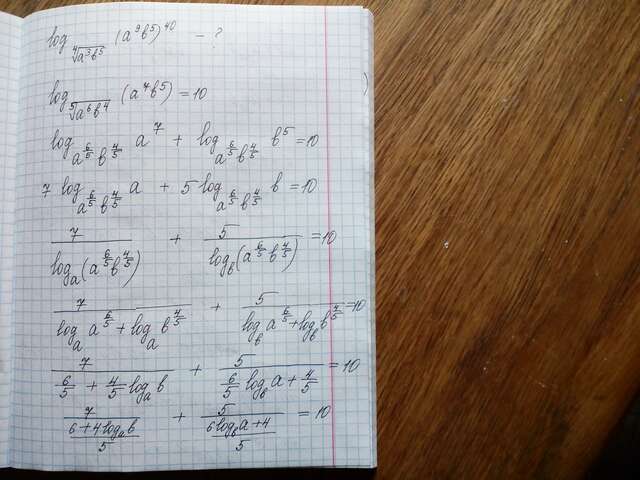 log_{\sqrt[4]{a^3b^5}} (a^9b^5)^{40} - ?
log_{\sqrt[5]{a^6b^4}} (a^7b^5) = 10
log_{a^{6/5}b^{4/5}} a^7 + log_{a^{6/5}b^{4/5}} b^5 = 10
7 log_{a^{6/5}b^{4/5}} a + 5 log_{a^{6/5}b^{4/5}} b = 10
\frac{7}{log_a(a^{6/5}b^{4/5})} + \frac{5}{log_b(a^{6/5}b^{4/5})} = 10
\frac{7}{log_a a^{6/5} + log_a b^{4/5}} + \frac{5}{log_b a^{6/5} + log_b b^{4/5}} = 10
\frac{7}{\frac{6}{5} + \frac{4}{5} log_a b} + \frac{5}{\frac{6}{5} log_b a + \frac{4}{5}} = 10
\frac{7}{\frac{6 + 4 log_a b}{5}} + \frac{5}{\frac{6 log_b a + 4}{5}} = 10